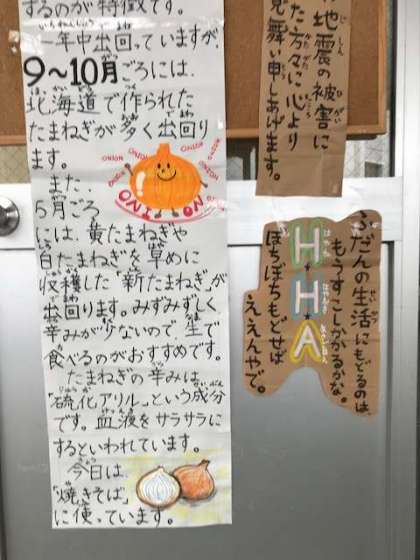 するのが特徴です。
一年中出回っていますが、
9～10月ごろには、
北海道で作られた
たまねぎが多く出回り
ます。
また、
5月ごろ
には、黄たまねぎや
白たまねぎを早めに
収穫した「新たまねぎ」が
出回ります。みずみずしく
辛みが少ないので、生で
食べるのがおすすめです。
たまねぎの辛みは、
「硫化アリル」という成分
です。血液をサラサラに
するといわれています。
今日は、
「焼きそば」
に使っています。
ONION ONION ONION ONION ONION
ONION
地震の被害に
た方々に心より
見舞い申しあげます。
ふだんの生活にもどるのは、
もうすこしかかるかな。
H+H+A
ぼちぼちもどせば
ええんやで。